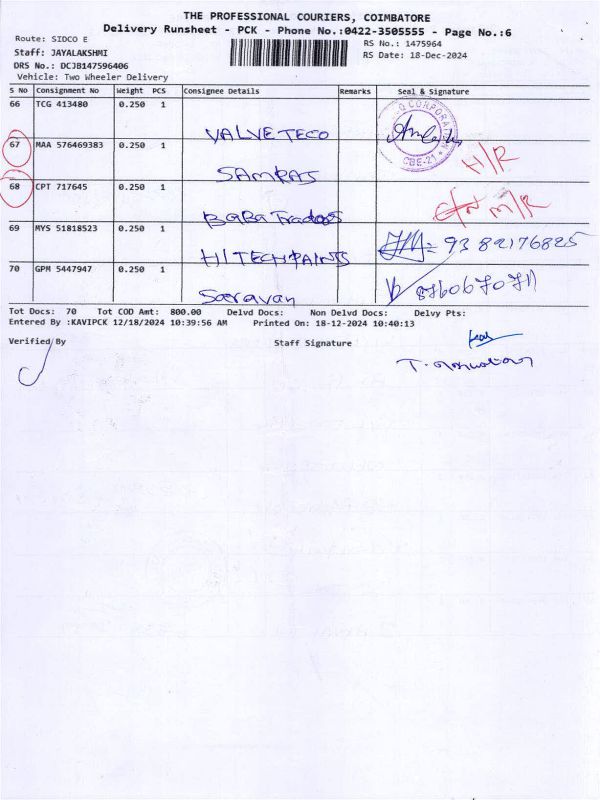 THE PROFESSIONAL COURIERS, COIMBATORE
Delivery Runsheet - PCK - Phone No.:0422-3505555 - Page No.:6
Route: SIDCO E
RS No.: 1475964
Staff: JAYALAKSHMI
RS Date: 18-Dec-2024
DRS No.: DCJB147596406
Vehicle: Two Wheeler Delivery
S No Consignment No Weight PCS Consignee Details Remarks Seal & Signature
66 TCG 413480 0.250 1
VALVETECO
CBE-21
67 MAA 576469383 0.250 1
H/R
SAMRAJ
68 CPT 717645 0.250 1
M/R
BaBa Traders
69 MYS 51818523 0.250 1
9382176825
HITECHPAINTS
70 GPM 5447947 0.250 1
8760670711
Saravan
Tot Docs: 70 Tot COD Amt: 800.00 Delvd Docs: Non Delvd Docs: Delvy Pts:
Entered By :KAVIPCK 12/18/2024 10:39:56 AM Printed On: 18-12-2024 10:40:13
Verified By Staff Signature